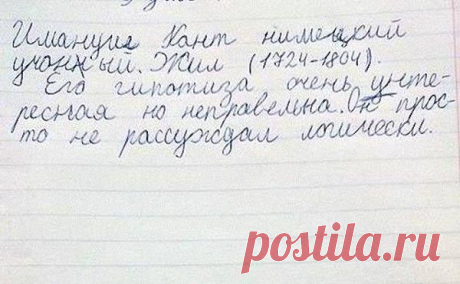 Имануиг Кант нимецкий
учонный. Жил (1724-1804).
Его гипотиза очень унте-
ресная но неправельна. Он прос-
то не рассуждал логически.
postila.ru